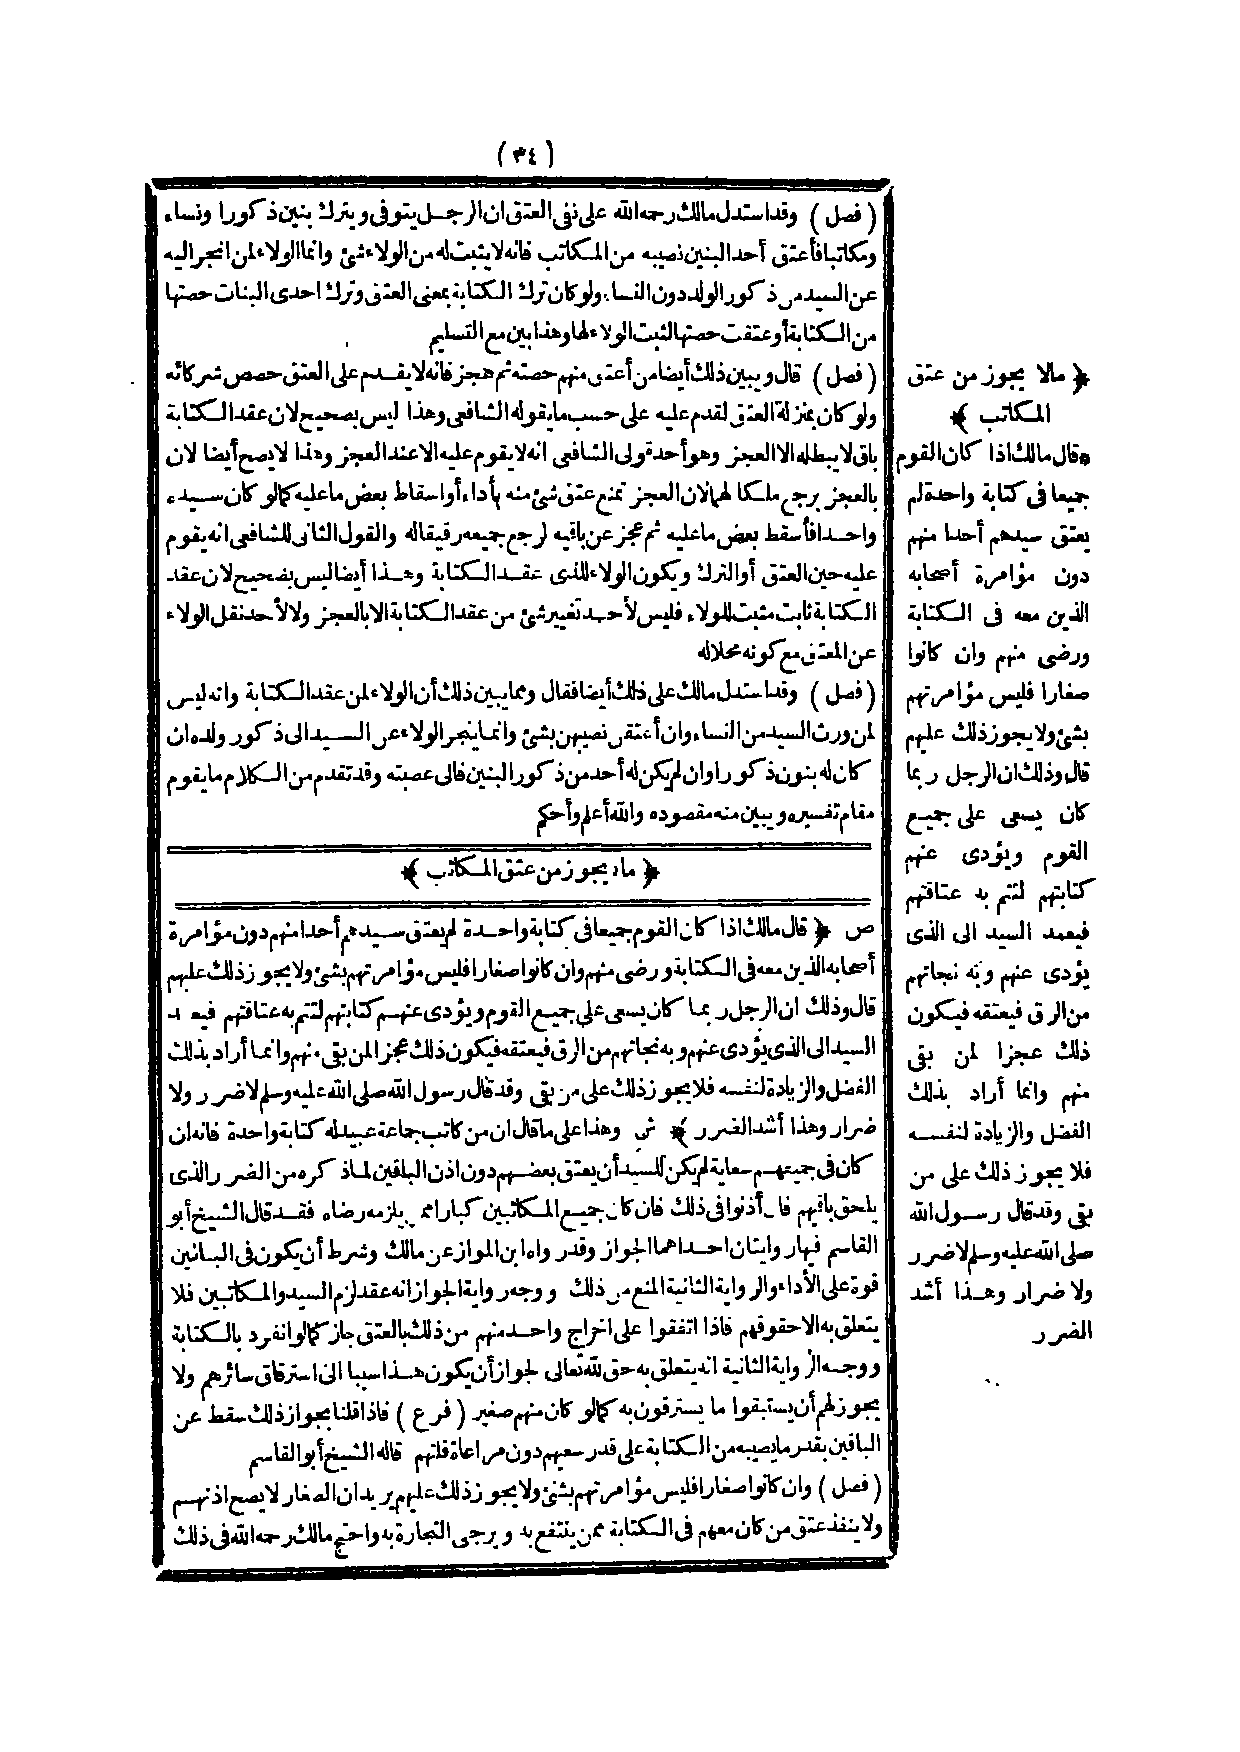 (٣٤)
(فصل) وقد استدل مالك رحمه الله على نفى العتق ان الرجل يتوفى ويترك بنين ذكورا ونساء
ومكاتبا فأعتق أحد البنين نصيبه من المكاتب فانه لا يثبت له من الولاء شئ وانما الولاء لمن انجر اليه
عن السيد من ذكور الولد دون النساء ولو كان ترك الكتابة بمعنى العتق وترك احدى البنات حصتها
من الكتابة أو عتقت حصتها لثبت الولاء لها وهذا بين مع التسليم
(فصل) قال ويبين ذلك أيضا من أعتق منهم حصته ثم عجز فانه لا يقدم على العتق حصص شركائه
ولو كان بمنزلة العتق لقدم عليه على حسب ما يقوله الشافعى وهذا ليس بصحيح لان عقد الكتابة
باق لا يبطله الا العجز وهو أحد قولى الشافعى انه لا يقوم عليه الا عند العجز وهذا لا يصح أيضا لان
بالعجز يرجع ملكا لهما لان العجز يمنع عتق شئ منه بأداء أو اسقاط بعض ما عليه كما لو كان سيده
واحدا فأسقط بعض ما عليه ثم عجز عن باقيه لرجع جميعه رقيقا له والقول الثانى للشافعى انه يقوم
عليه حين العتق أو الترك ويكون الولاء للذى عقد الكتابة وهذا أيضا ليس بصحيح لان عقد
الكتابة ثابت مثبت للولاء فليس لأحد تغيير شئ من عقد الكتابة الا بالعجز ولا لأحد نقل الولاء
عن المعتق مع كونه محلا له
(فصل) وقد استدل مالك على ذلك أيضا فقال ومما يبين ذلك أن الولاء لمن عقد الكتابة وانه ليس
لمن ورث السيد من النساء وان أعتقن نصيبهن بشئ وانما ينجر الولاء عن السيد الى ذكور ولده ان
كان له بنون ذكورا وان لم يكن له أحد من ذكور البنين فالى عصبته وقد تقدم من الكلام ما يقوم
مقام تفسيره ويبين منه مقصوده والله أعلم وأحكم
﴿ ما لا يجوز من عتق المكاتب ﴾
ص ﴿ قال مالك اذا كان القوم جميعا فى كتابة واحدة لم يعتق سيدهم أحدا منهم دون مؤامرة
أصحابه الذين معه فى الكتابة ورضى منهم وان كانوا صغارا فليس مؤامرتهم بشئ ولا يجوز ذلك عليهم
قال وذلك ان الرجل ربما كان يسعى على جميع القوم ويؤدى عنهم كتابتهم لتتم به عتاقتهم فيعمد
السيد الى الذى يؤدى عنهم وبه نجاتهم من الرق فيعتقه فيكون ذلك عجزا لمن بقى منهم وانما أراد بذلك
الفضل والزيادة لنفسه فلا يجوز ذلك على من بقى وقد قال رسول الله صلى الله عليه وسلم لا ضرر ولا
ضرار وهذا أشد الضرر ﴾ ش وهذا على ما قال ان من كاتب جماعة عبيد له كتابة واحدة فانه ان
كان فى جميعهم سعاية لم يكن للسيد أن يعتق بعضهم دون اذن الباقين لما ذكره من الضرر الذى
يلحق باقيهم فان أذنوا فى ذلك فان كان جميع المكاتبين كبارا ممن يلزمه رضاه فقد قال الشيخ أبو
القاسم فيها روايتان احداهما الجواز وقد رواه ابن المواز عن مالك وشرط أن يكون فى الباقين
قوة على الأداء والرواية الثانية المنع من ذلك ووجه رواية الجواز انه عقد لزم السيد والمكاتبين فلا
يتعلق به الا حقوقهم فاذا اتفقوا على اخراج واحد منهم من ذلك بالعتق جاز كما لو انفرد بالكتابة
ووجه الرواية الثانية انه يتعلق به حق لله تعالى لجواز أن يكون هذا سببا الى استرقاق سائرهم ولا
يجوز لهم أن يستبقوا ما يسترقون به كما لو كان منهم صغير (فرع) فاذا قلنا بجواز ذلك سقط عن
الباقين بقدر ما يصيبه من الكتابة على قدر سعيهم دون مراعاة قلتهم قاله الشيخ أبو القاسم
(فصل) وان كانوا صغارا فليس مؤامرتهم بشئ ولا يجوز ذلك عليهم يريد ان الصغار لا يصح اذنهم
ولا ينفذ عتق من كان معهم فى الكتابة ممن ينتفع به ويرجى التجارة به واحتج مالك رحمه الله فى ذلك
﴿ مالا يجوز من عتق
المكاتب ﴾
* قال مالك اذا كان القوم
جميعا فى كتابة واحدة لم
يعتق سيدهم أحدا منهم
دون مؤامرة أصحابه
الذين معه فى الكتابة
ورضى منهم وان كانوا
صغارا فليس مؤامرتهم
بشئ ولا يجوز ذلك عليهم
قال وذلك ان الرجل ربما
كان يسعى على جميع
القوم ويؤدى عنهم
كتابتهم لتتم به عتاقتهم
فيعمد السيد الى الذى
يؤدى عنهم وبه نجاتهم
من الرق فيعتقه فيكون
ذلك عجزا لمن بقى
منهم وانما أراد بذلك
الفضل والزيادة لنفسه
فلا يجوز ذلك على من
بقى وقد قال رسول الله
صلى الله عليه وسلم لا ضرر
ولا ضرار وهذا أشد
الضرر